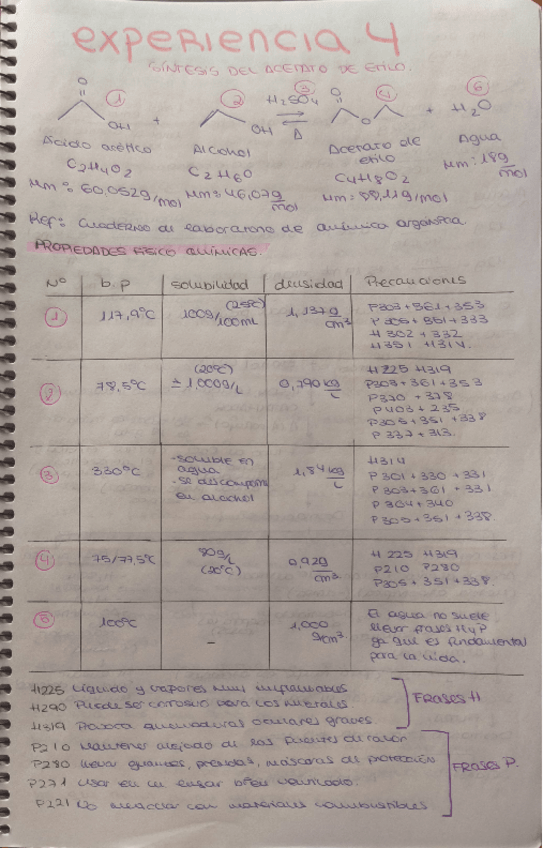 experiencia 4
SÍNTESIS DEL ACETATO DE ETILO.
O ① OH + ② OH H₂SO₄ ③ ⇌ Δ O O ④ + H₂O ⑤
Ácido acético Alcohol Acetato de etilo Agua
C₂H₄O₂ C₂H₆O C₄H₈O₂ Mm: 18g/mol
Mm: 60,052g/mol Mm: 46,07g/mol Mm: 88,11g/mol
Ref: Cuaderno de laboratorio de química orgánica
PROPIEDADES FÍSICO QUÍMICAS.
Nº b.p solubilidad densidad Precauciones
① 117,9ºC 100g/100mL (25ºC) 1,137g/cm³ P303+361+353
P305+351+333
H302+332
H351 H314.
② 78,5ºC (20ºC) ± 1.000g/L 0,790kg/L H225 H319
P303+361+353
P370+378
P403+235
P305+351+338
P337+313.
③ 330ºC -soluble en agua
-se descompone en alcohol
1,84kg/L H314
P301+330+331
P303+361+331
P304+340
P305+351+338.
④ 75/77,5ºC 80g/L (20ºC) 0,92g/cm³ H225 H319
P210 P280
P305+351+338.
⑤ 100ºC - 1,000 g/cm³. El agua no suele
llevar frases H y P
ya que es fundamental
para la vida.
H225 Líquido y vapores muy inflamables
H290 Puede ser corrosivo para los metales.
H319 Provoca quemaduras oculares graves.
FRASES H
P210 Mantener alejado de las fuentes de calor
P280 llevar guantes, prendas, máscaras de protección
P271 Usar en un lugar bien ventilado.
P221 No mezclar con materiales combustibles
FRASES P.